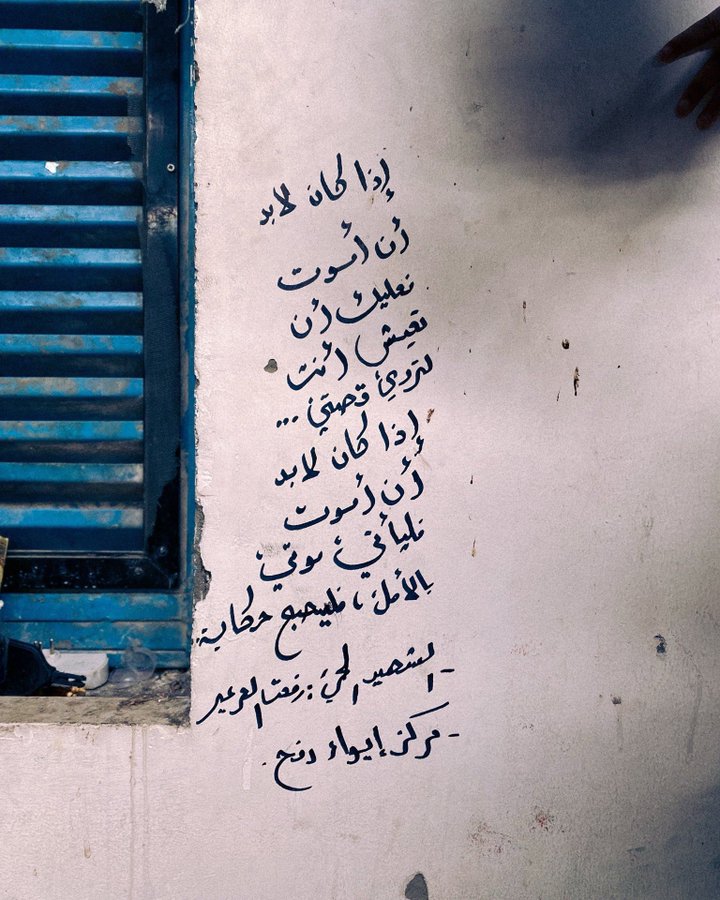 إذا كان لابد
أن أموت
فعليك أن
تعيش أنت
لتروي قصتي ...
إذا كان لابد
أن أموت
فليأتي موتي
بالأمل، فليصبح حكاية.
- الشهيد الحي: رفعت العرعير
- مركز إيواء رفح.